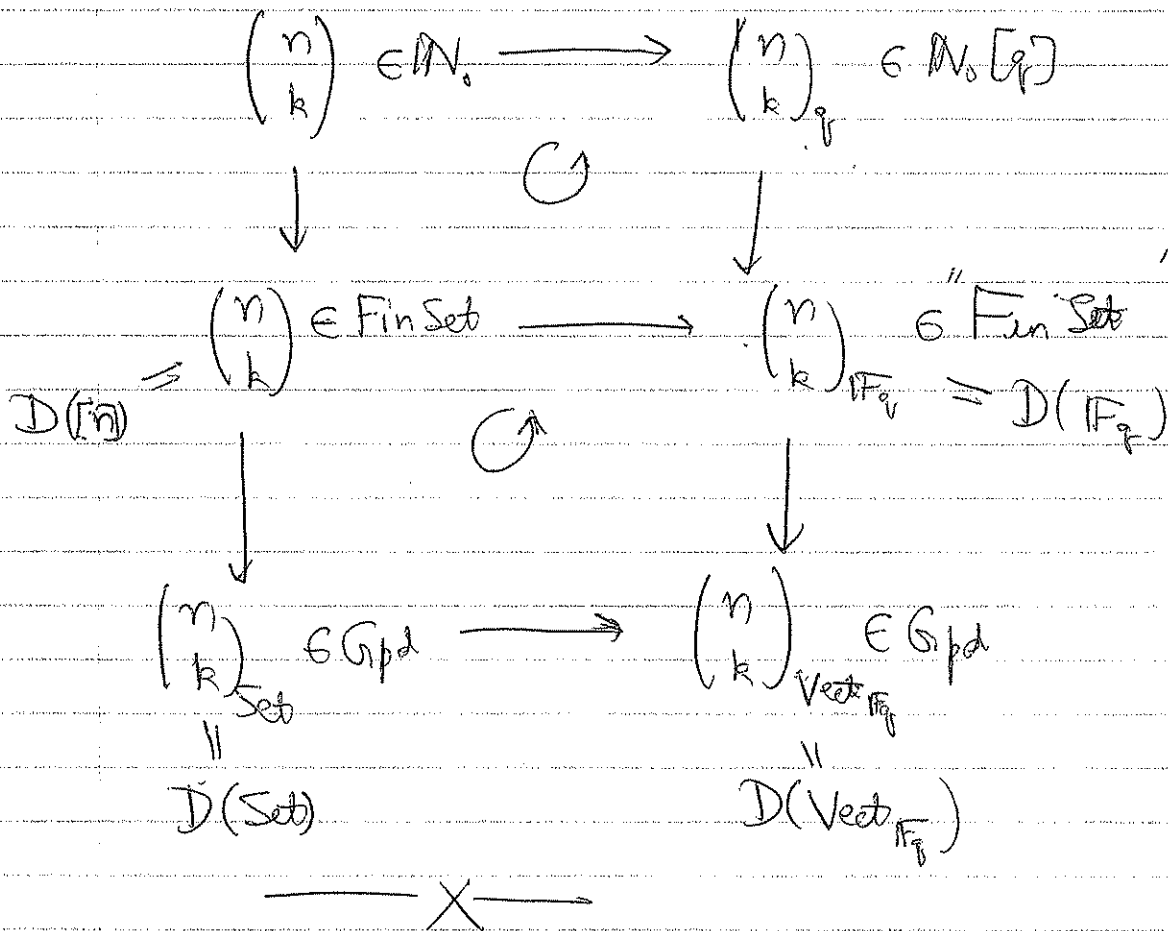 (n k) ∈ ℕ₀ ⟶ (n k)_q ∈ ℕ₀[q]
↺
(n k) ∈ FinSet ⟶ (n k)_{𝔽_q} ∈ "FinSet
D([n]) = = D(𝔽_q)
↺
(n k)_{Set} ∈ Gpd ⟶ (n k)_{Vect_{𝔽_q}} ∈ Gpd
|| ||
D(Set) D(Vect_{𝔽_q})
—— X ——